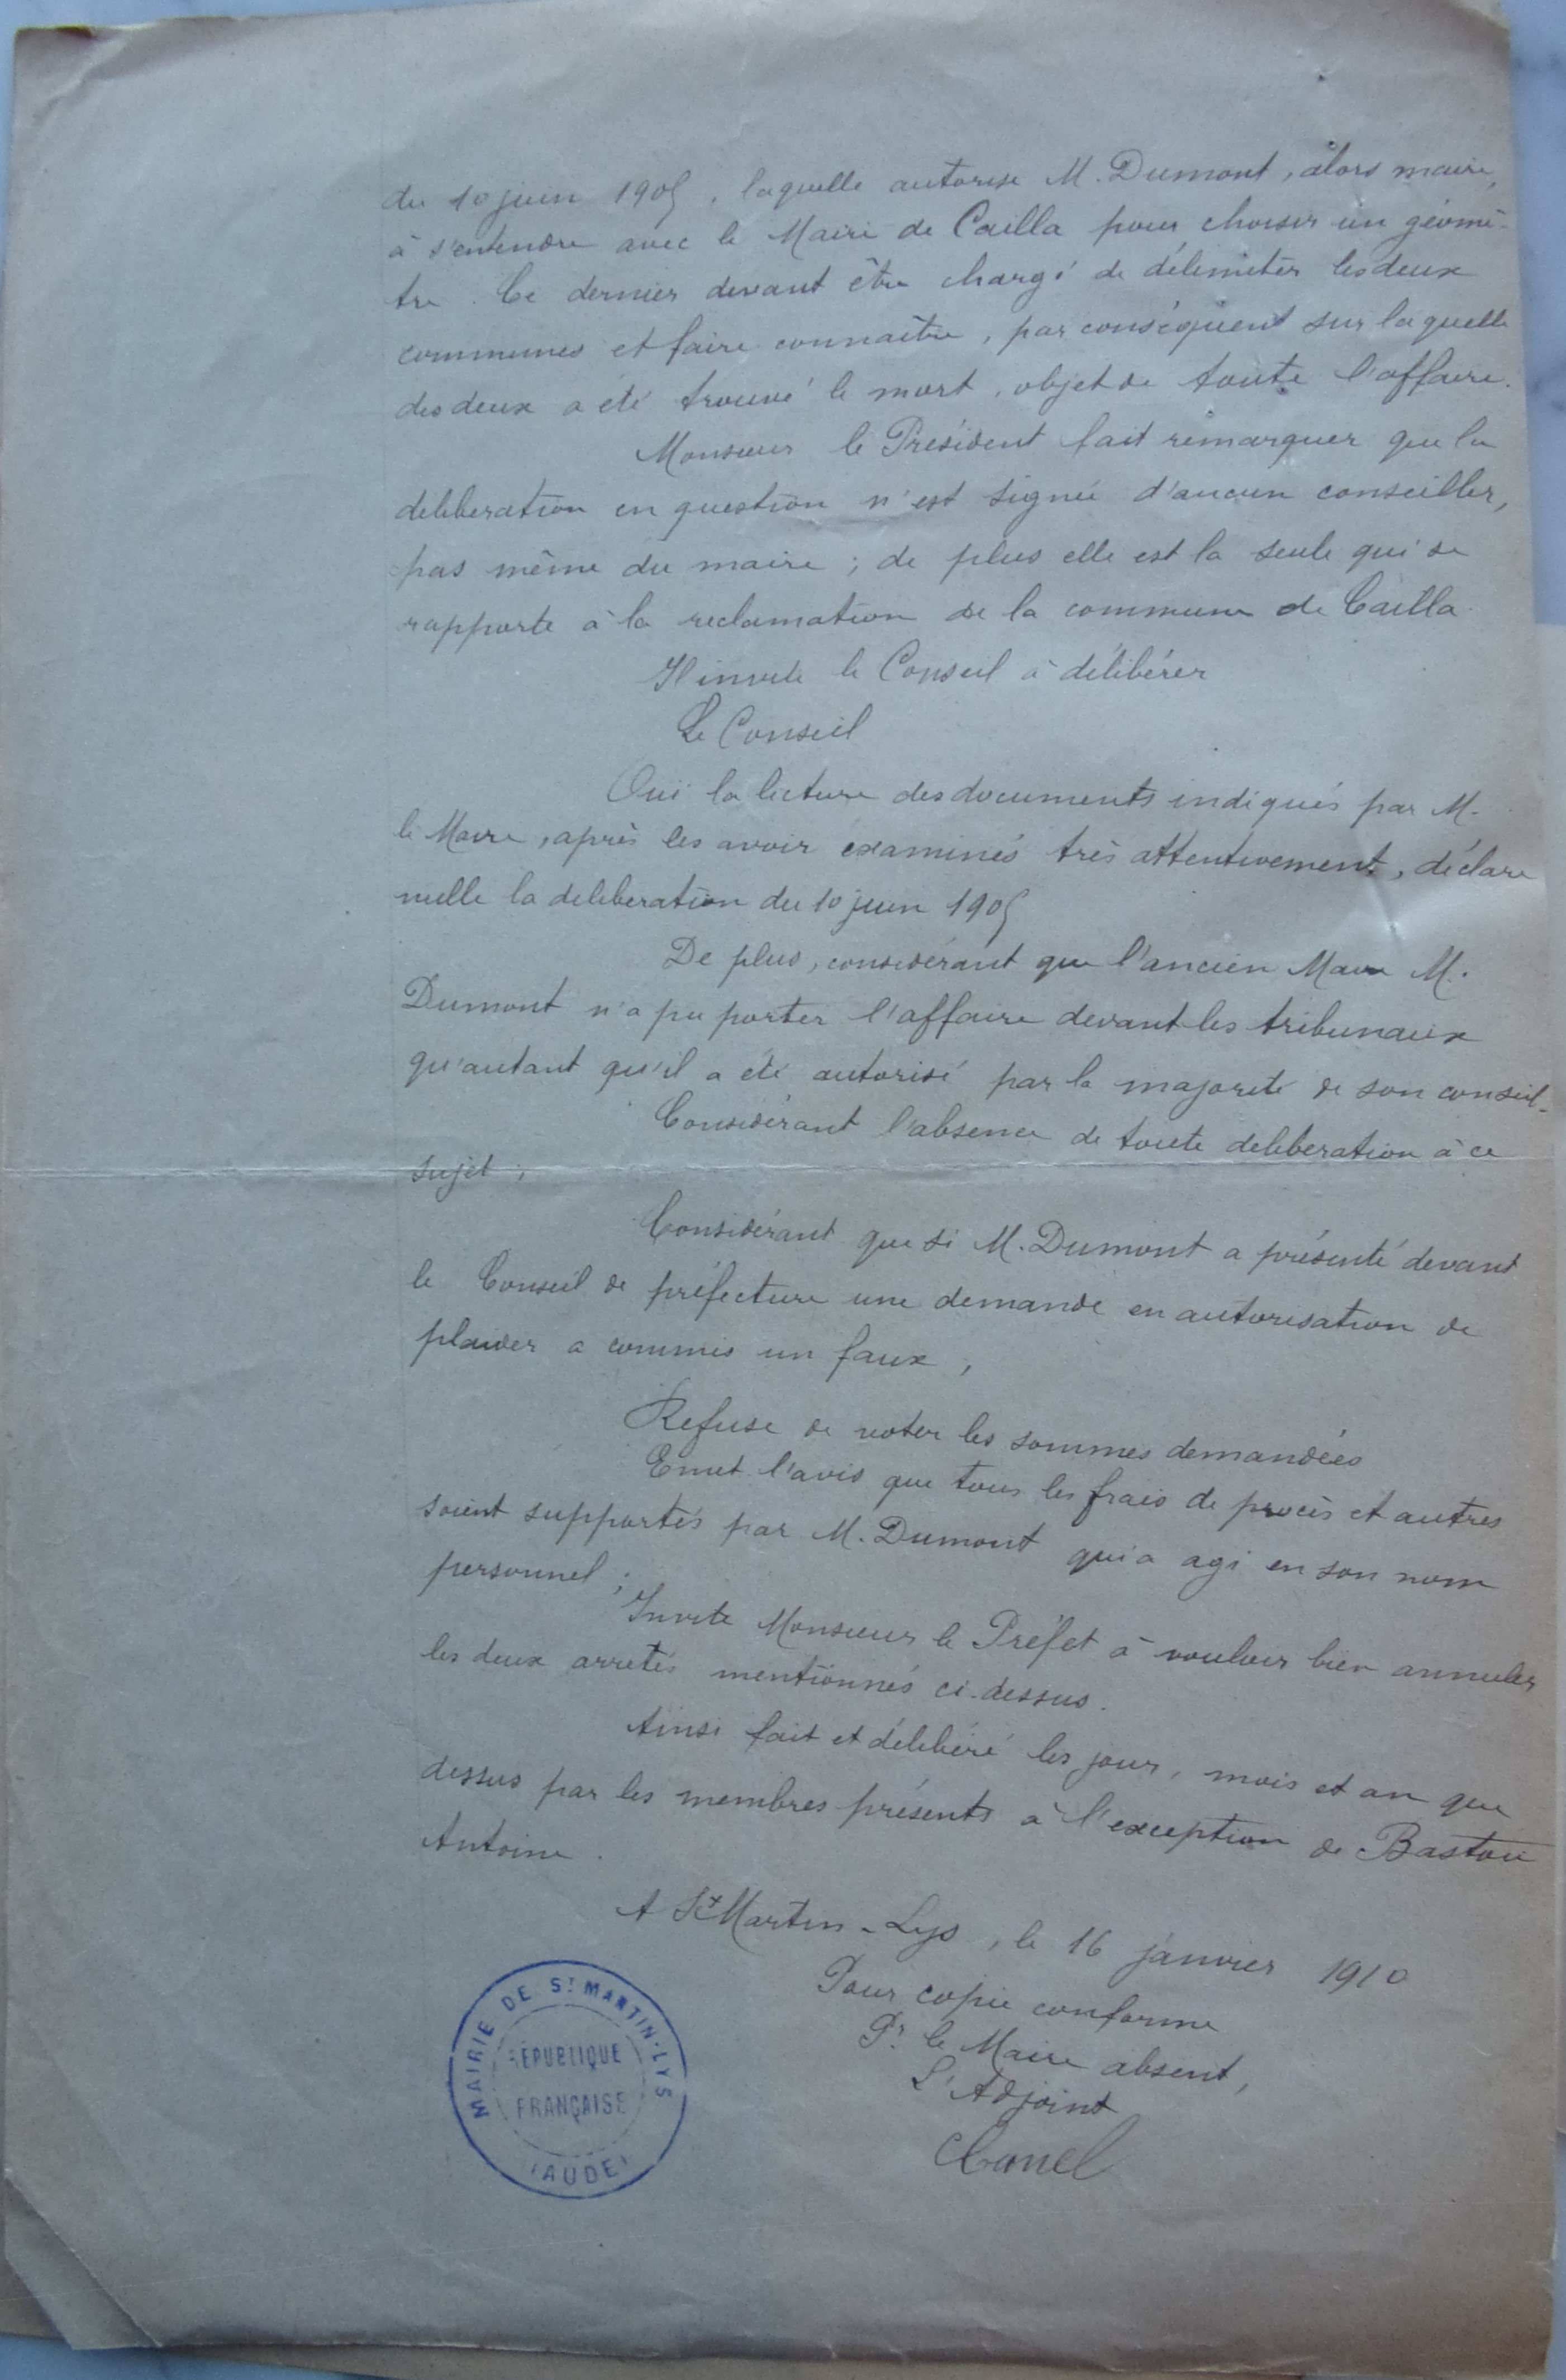 du 10 juin 1905, laquelle autorise M. Dumont, alors maire,
à s'entendre avec le Maire de Cailla pour choisir un géomè-
tre. Ce dernier devant être chargé de délimiter les deux
communes et faire connaître, par conséquent sur laquelle
des deux a été trouvé le mort, objet de toute l'affaire.
Monsieur le Président fait remarquer que la
deliberation en question n'est signée d'aucun conseiller,
pas même du maire ; de plus elle est la seule qui se
rapporte à la reclamation de la commune de Cailla.
Il invite le Conseil à délibérer
Le Conseil
Oui la lecture des documents indiqués par M.
le Maire, après les avoir examinés très attentivement, déclare
nulle la deliberation du 10 juin 1905
De plus, considérant que l'ancien Maire M.
Dumont n'a pu porter l'affaire devant les tribunaux
qu'autant qu'il a été autorisé par la majorité de son conseil.
Considérant l'absence de toute deliberation à ce
sujet ;
Considérant que si M. Dumont a présenté devant
le Conseil de préfecture une demande en autorisation de
plaider a commis un faux ,
Refuse de voter les sommes demandées
Emet l'avis que tous les frais de procès et autres
soient supportés par M. Dumont qui a agi en son nom
personnel ;
Invite Monsieur le Préfet à vouloir bien annuler
les deux arretés mentionnés ci-dessus.
Ainsi fait et délibéré les jour, mois et an que
dessus par les membres présents à l'exception de Bastou
Antoine.
A St Martin-Lys, le 16 janvier 1910
Pour copie conforme
Pr. le Maire absent,
L'Adjoint
MAIRIE DE ST MARTIN-LYS
RÉPUBLIQUE
FRANÇAISE
(AUDE)